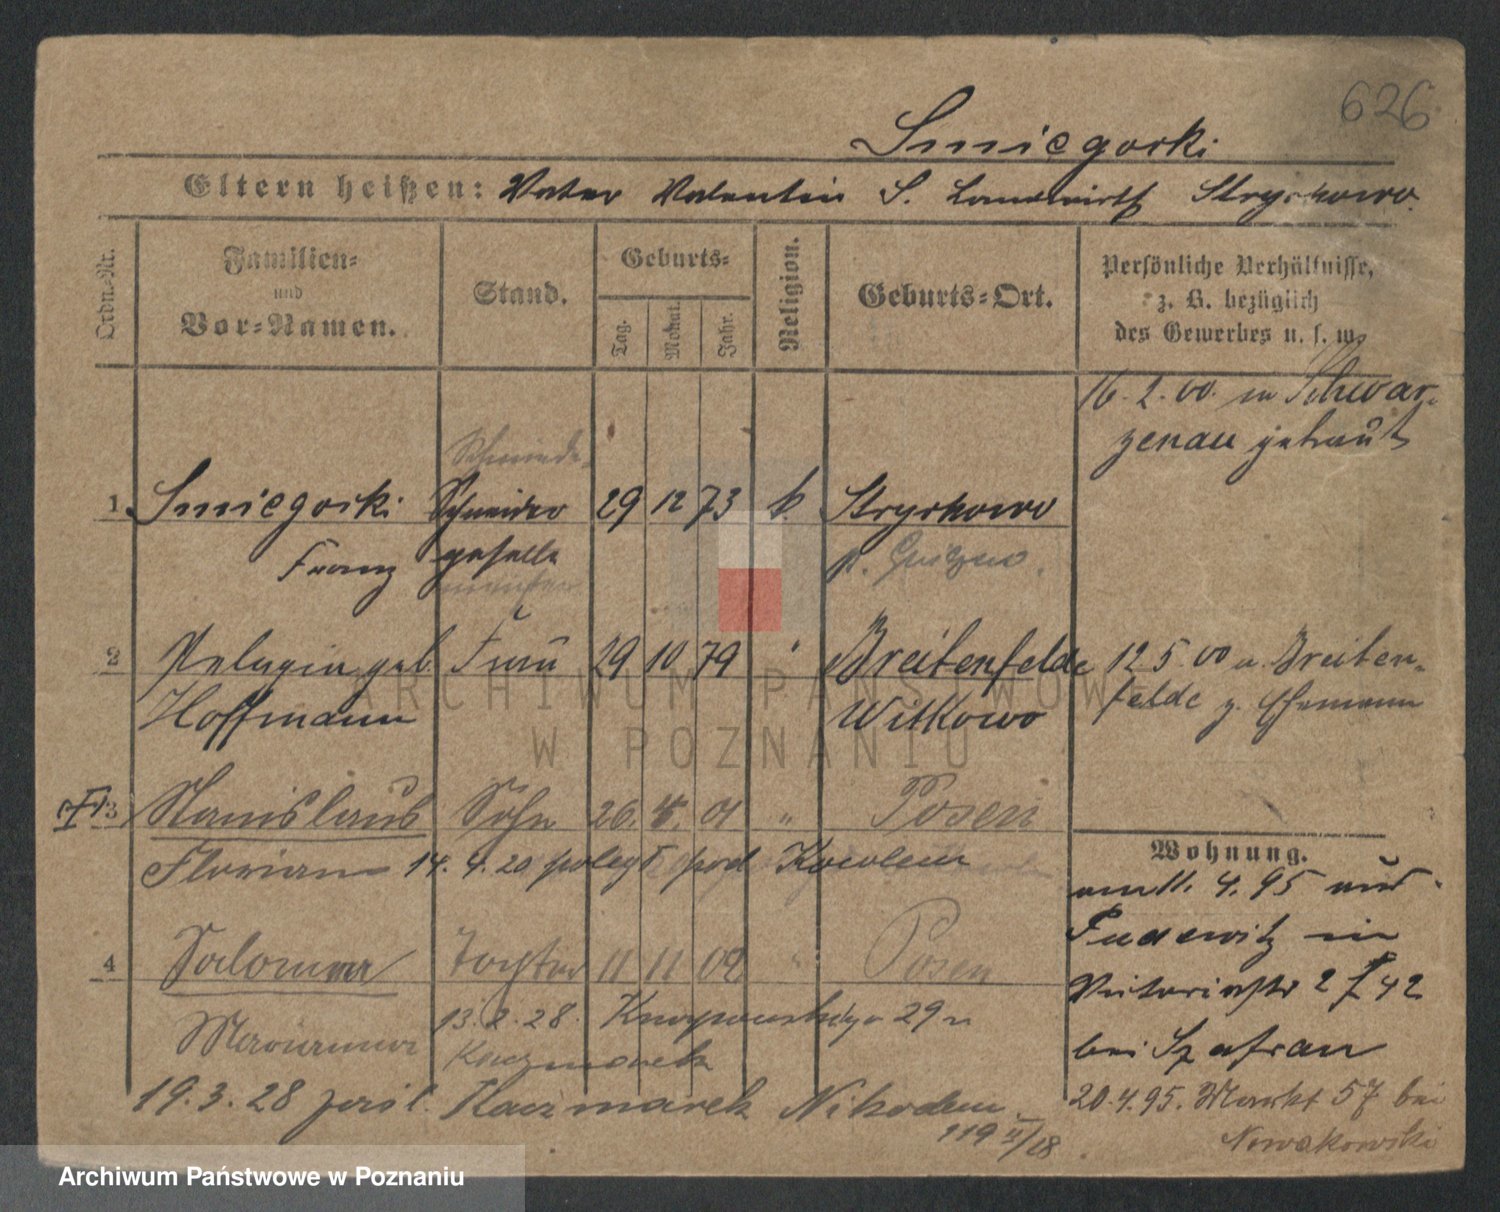 626
Smiegorski
Eltern heißen: Vater Valentin S. Landwirth Stryskowo.
Ordn.-Nr.
Familien-
und
Vor-Namen.
Stand.
Geburts-
Tag.
Monat.
Jahr.
Religion.
Geburts-Ort.
Persönliche Verhältnisse,
z. B. bezüglich
des Gewerbes u. s. w.
16. 2. 00. in Schwar-
zenau getraut
1 Smiegorski Schneider 29 12 73 k. Stryskowo
Franz geselle
meister
2 Pelagia geb. Frau 29 10 79 " Breitenfelde 12 5. 00 a. Breiten-
Hoffmann Witkowo felde z. Ehemann
3 Stanislaus Sohn 26. 4. 01 " Posen
Florian 14. 4. 20 poległ pod Kowlem
Wohnung.
4. 95 aus
Pudewitz in
Victoriastr 2 42
bei Szafran
4 Salomea Tochter 11 11 02 " Posen
Marianna 13. 2. 28. 29
Kaczmarek
19. 3. 28 Kaczmarek Nikodem
119 II/28
20. 4. 95. Markt 57 bei
Nowakowski
ARCHIWUM PAŃSTWOWE
W POZNANIU
Archiwum Państwowe w Poznaniu